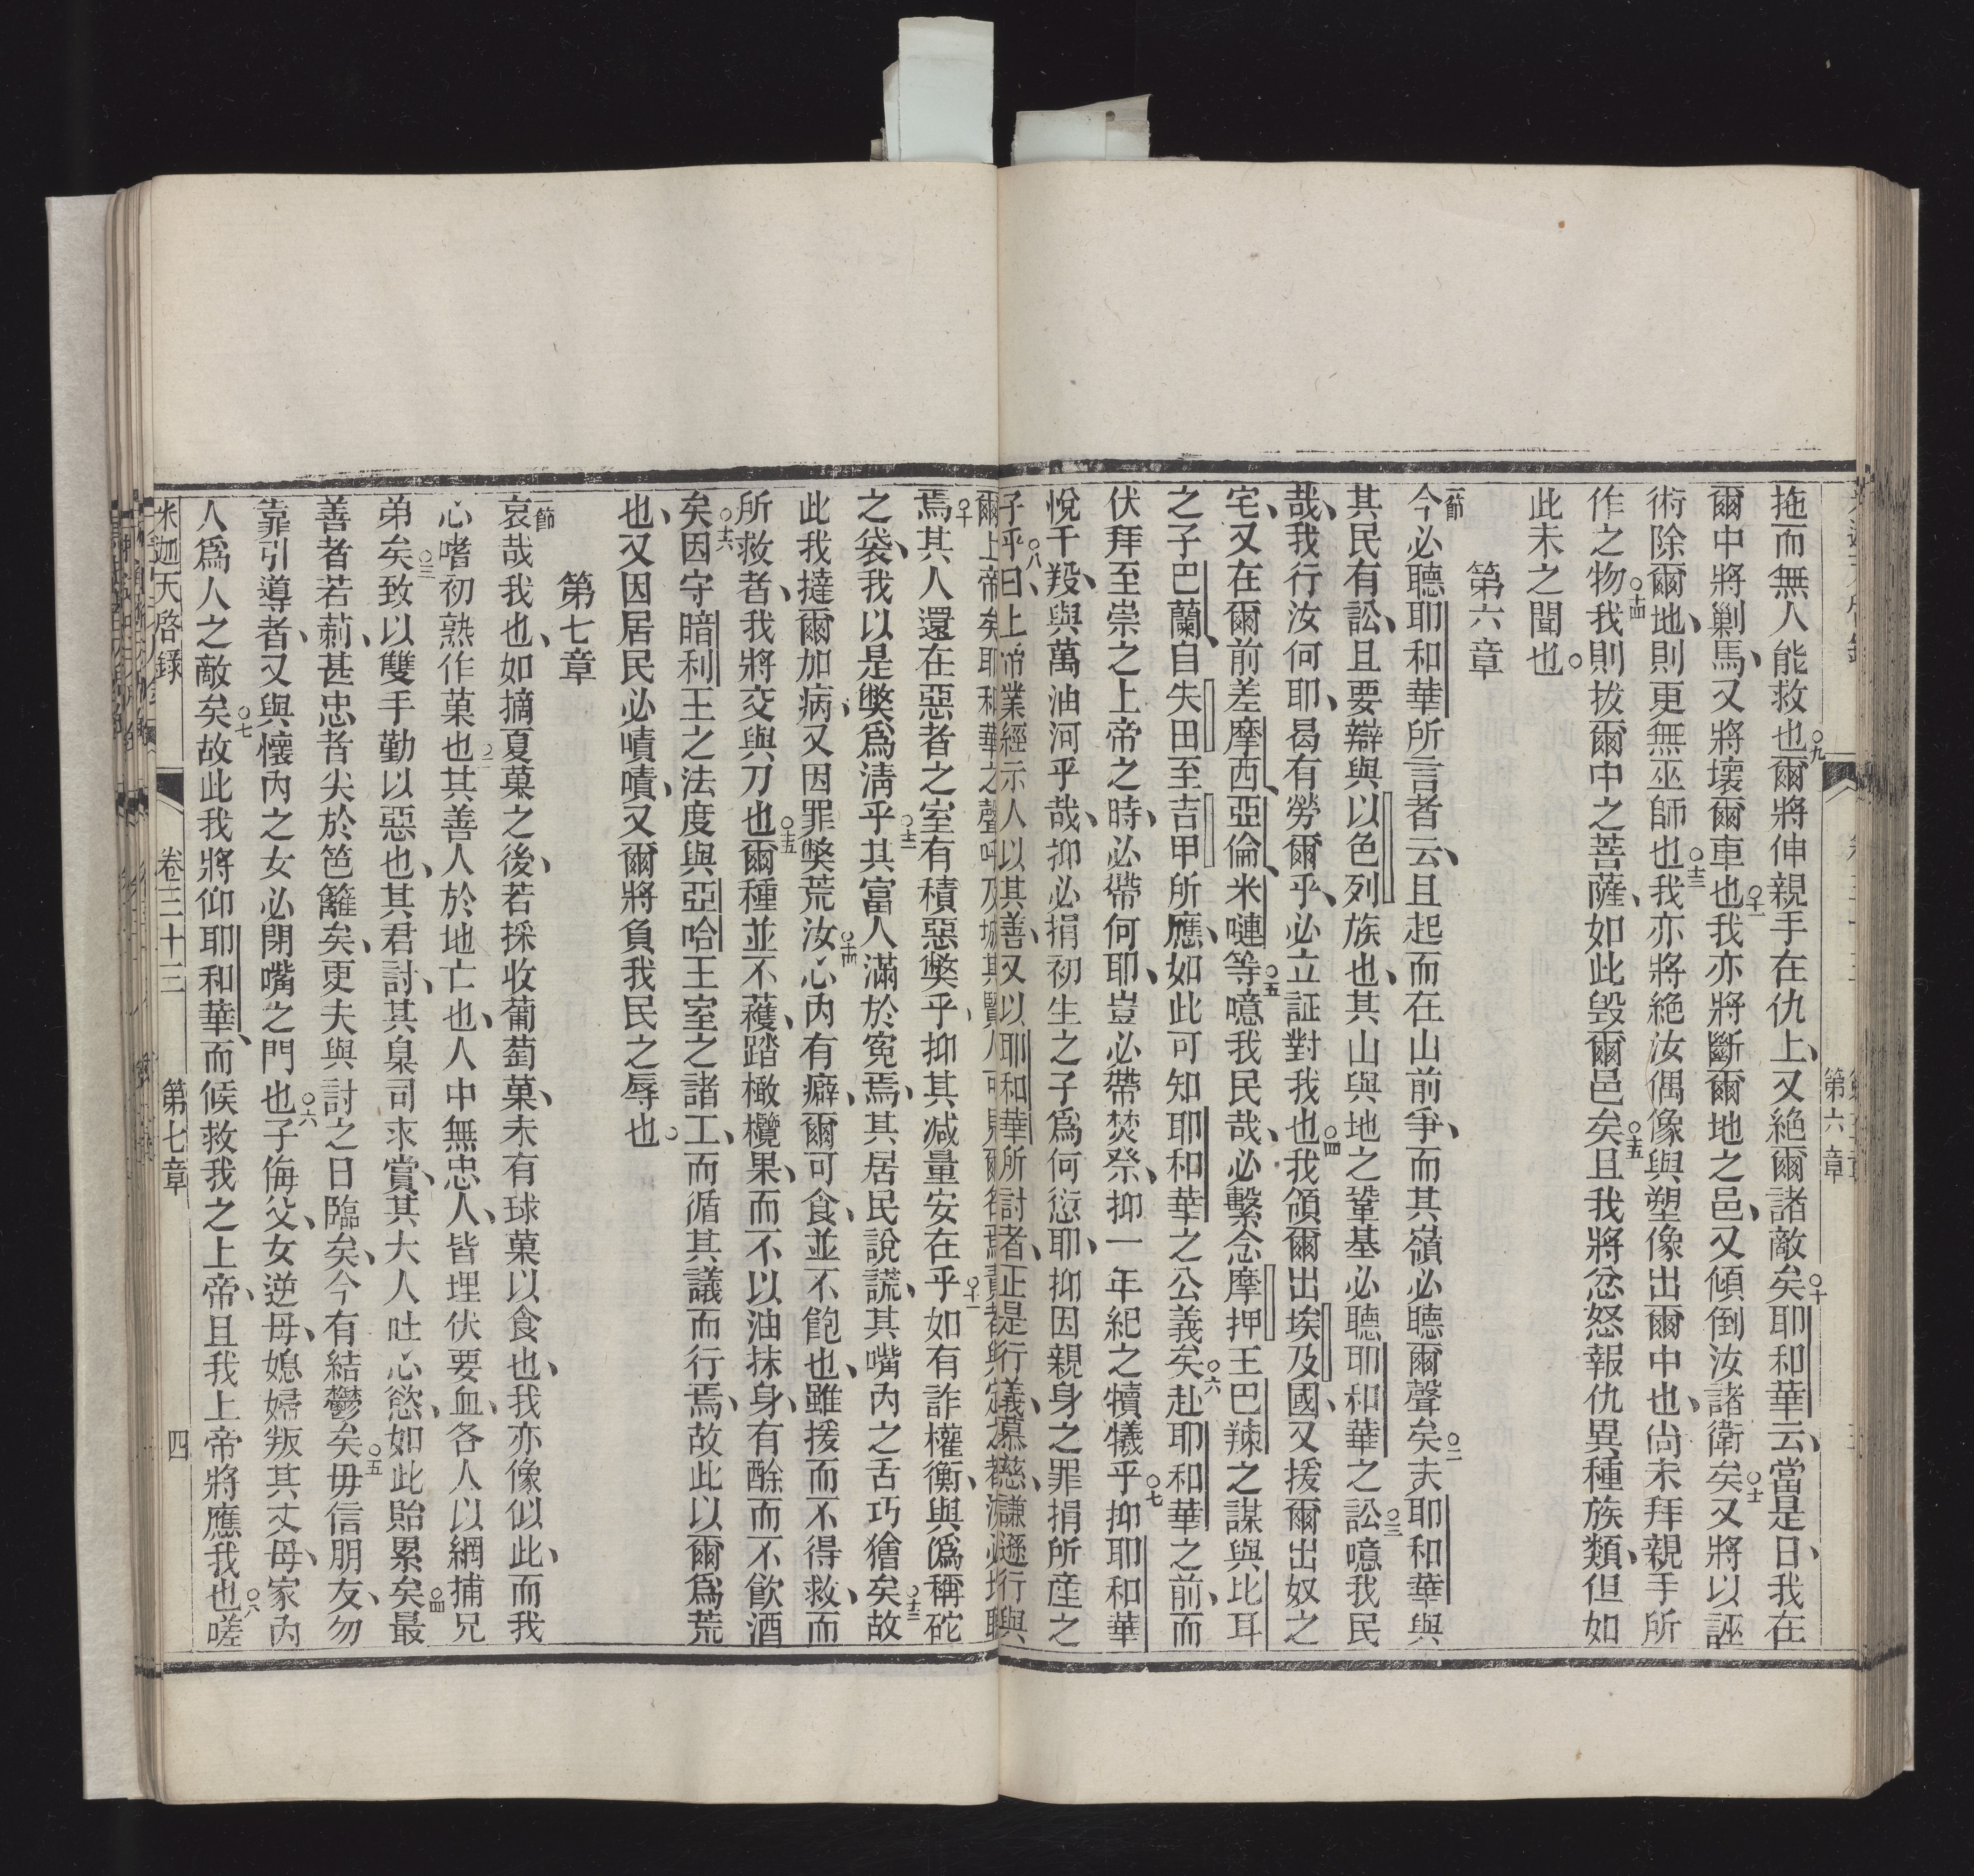 拖而無人能救也○九爾將伸親手在仇上、又絕爾諸敵矣○十耶和華云、當是日、我在
爾中將剿馬、又將壞爾車也○十一我亦將斷爾地之邑、又傾倒汝諸衛矣○十二又將以誣
術除爾地、則更無巫師也○十三我亦將絕汝偶像與塑像出爾中也、尚未拜親手所
作之物○十四我則拔爾中之菩薩、如此毀爾邑矣○十五且我將忿怒報仇異種族類、但如
此未之聞也。
第六章
一節今必聽耶和華所言者云、且起而在山前爭、而其嶺必聽爾聲矣○二夫耶和華與
其民有訟、且要辯與以色列族也、其山與地之鞏基必聽耶和華之訟○三噫我民
哉、我行汝何耶、曷有勞爾乎、必立証對我也○四我領爾出埃及國、又援爾出奴之
宅、又在爾前差摩西、亞倫、米嗹等○五噫我民哉、必繫念摩押王巴辣之謀與比耳
之子巴蘭、自失田至吉甲所應、如此可知耶和華之公義矣○六赴耶和華之前、而
伏拜至崇之上帝之時、必帶何耶、豈必帶焚祭、抑一年紀之犢犧乎○七抑耶和華
悅千羖、與萬油河乎哉、抑必捐初生之子為何愆耶、抑因親身之罪捐所産之
子乎○八曰、上帝業經示人以其善、又以耶和華所討者、正是行義、慕慈、謙遜行與
爾上帝矣
焉○十其人還在惡者之室有積惡獘乎、抑其減量安在乎○十一如有詐權衡、與偽稱砣
之袋、我以是獘為清乎○十二其富人滿於寃焉、其居民說謊、其嘴內之舌巧獪矣○十三故
此我撻爾加病、又因罪獘荒汝○十四心內有癖、爾可食、並不飽也、雖援而不得救、而
所救者、我將交與刀也○十五爾種並不穫、踏橄欖果、而不以油抹身、有酴而不飲酒
矣○十六因守暗利王之法度與亞哈王室之諸工、而循其議而行焉、故此以爾為荒
也、又因居民必嘖嘖、又爾將負我民之辱也。
第七章
一節哀哉我也、如摘夏菓之後、若採收葡萄菓、未有球菓以食也、我亦像似此、而我
心嗜初熟作菓也○二其善人於地亡也、人中無忠人、皆埋伏要血、各人以網捕兄
弟矣○三致以雙手勤以惡也、其君討、其臬司求賞、其大人吐心慾、如此貽累矣○四最
善者若莿、甚忠者尖於笆籬矣、更夫與討之日臨矣、今有結鬱矣○五毋信朋友、勿
靠引導者、又與懷內之女必閉嘴之門也○六子侮父、女逆母、媳婦叛其丈母、家內
人為人之敵矣○七故此我將仰耶和華、而候救我之上帝、且我上帝將應我也○八嗟
米迦天啓錄 卷三十三 第七章 四